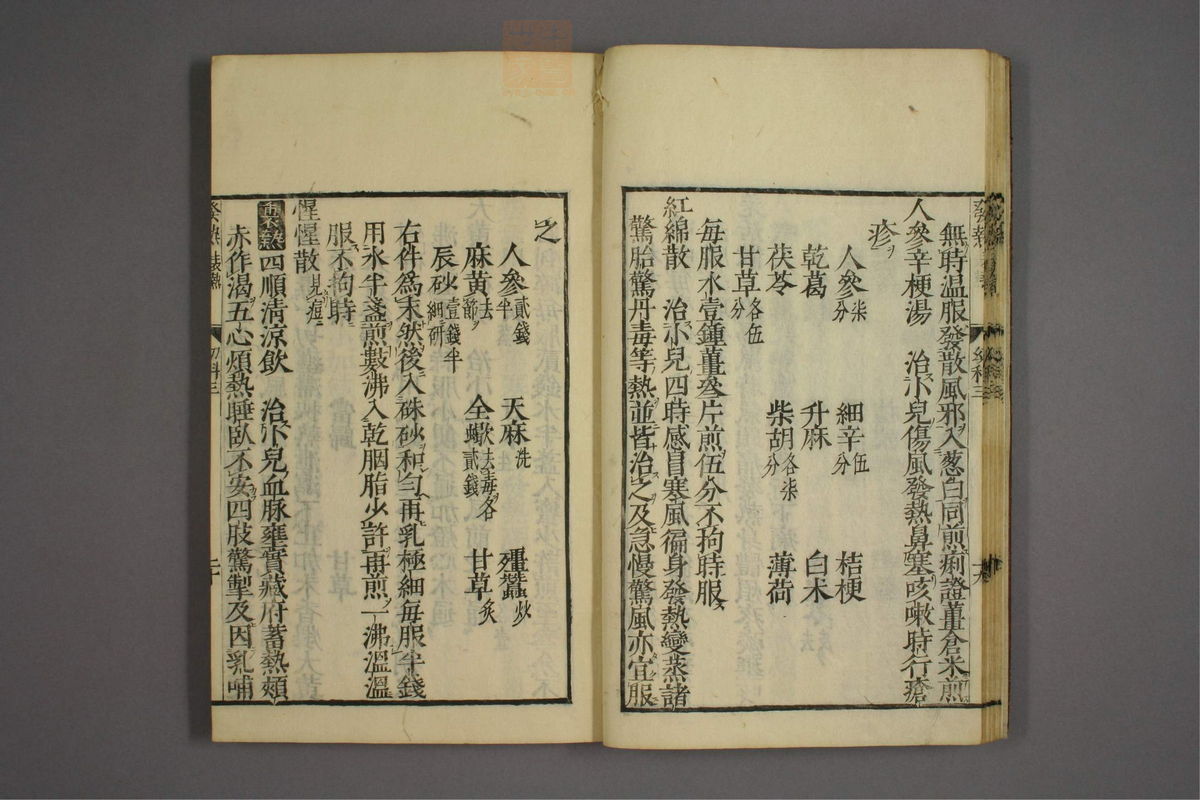 無時温服發散風邪入葱白同煎痢證薑倉米煎
人參辛梗湯　治小兒傷風發熱鼻塞咳嗽時行瘡
疹
人參柒分　細辛伍分　桔梗
乾葛　升麻　白朮
茯苓　柴胡各柒分　薄荷
甘草各伍分
毎服水壹鍾薑叄片煎伍分不拘時服
紅綿散　治小兒四時感冒寒風徧身發熱變蒸諸
驚胎驚丹毒等熱並皆治之及急慢驚風亦宜服
之
人參貳錢半　天麻洗　殭蠶炒
麻黄去節　全蠍去毒各貳錢　甘草炙
辰砂壹錢半細研
右件爲末然後入硃砂和勻再乳極細毎服半錢
用水半盞煎數沸入乾胭脂少許再煎一沸溫溫
服不拘時
惺惺散見痘
裏熱四順清涼飲　治小兒血脉壅實藏府蓄熱頰
赤作渴五心煩熱睡臥不安四肢驚掣及因乳哺
發熱　裏熱　幼科三　二十